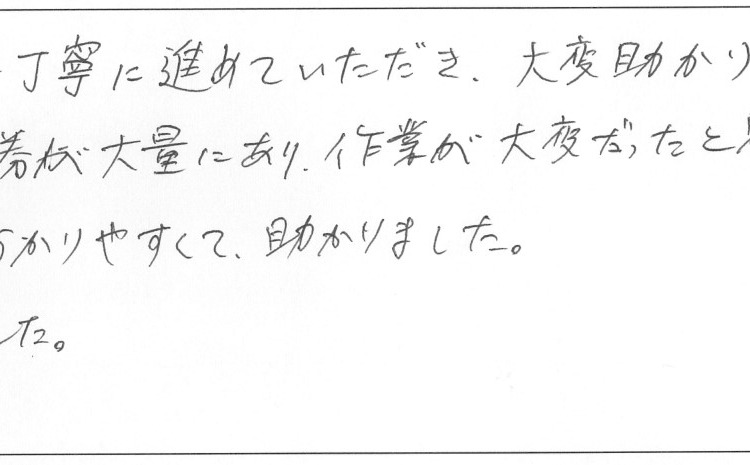 丁寧に進めていただき、大変助かり
券が大量にあり、作業が大変だったと
かりやすくて、助かりました。
した。